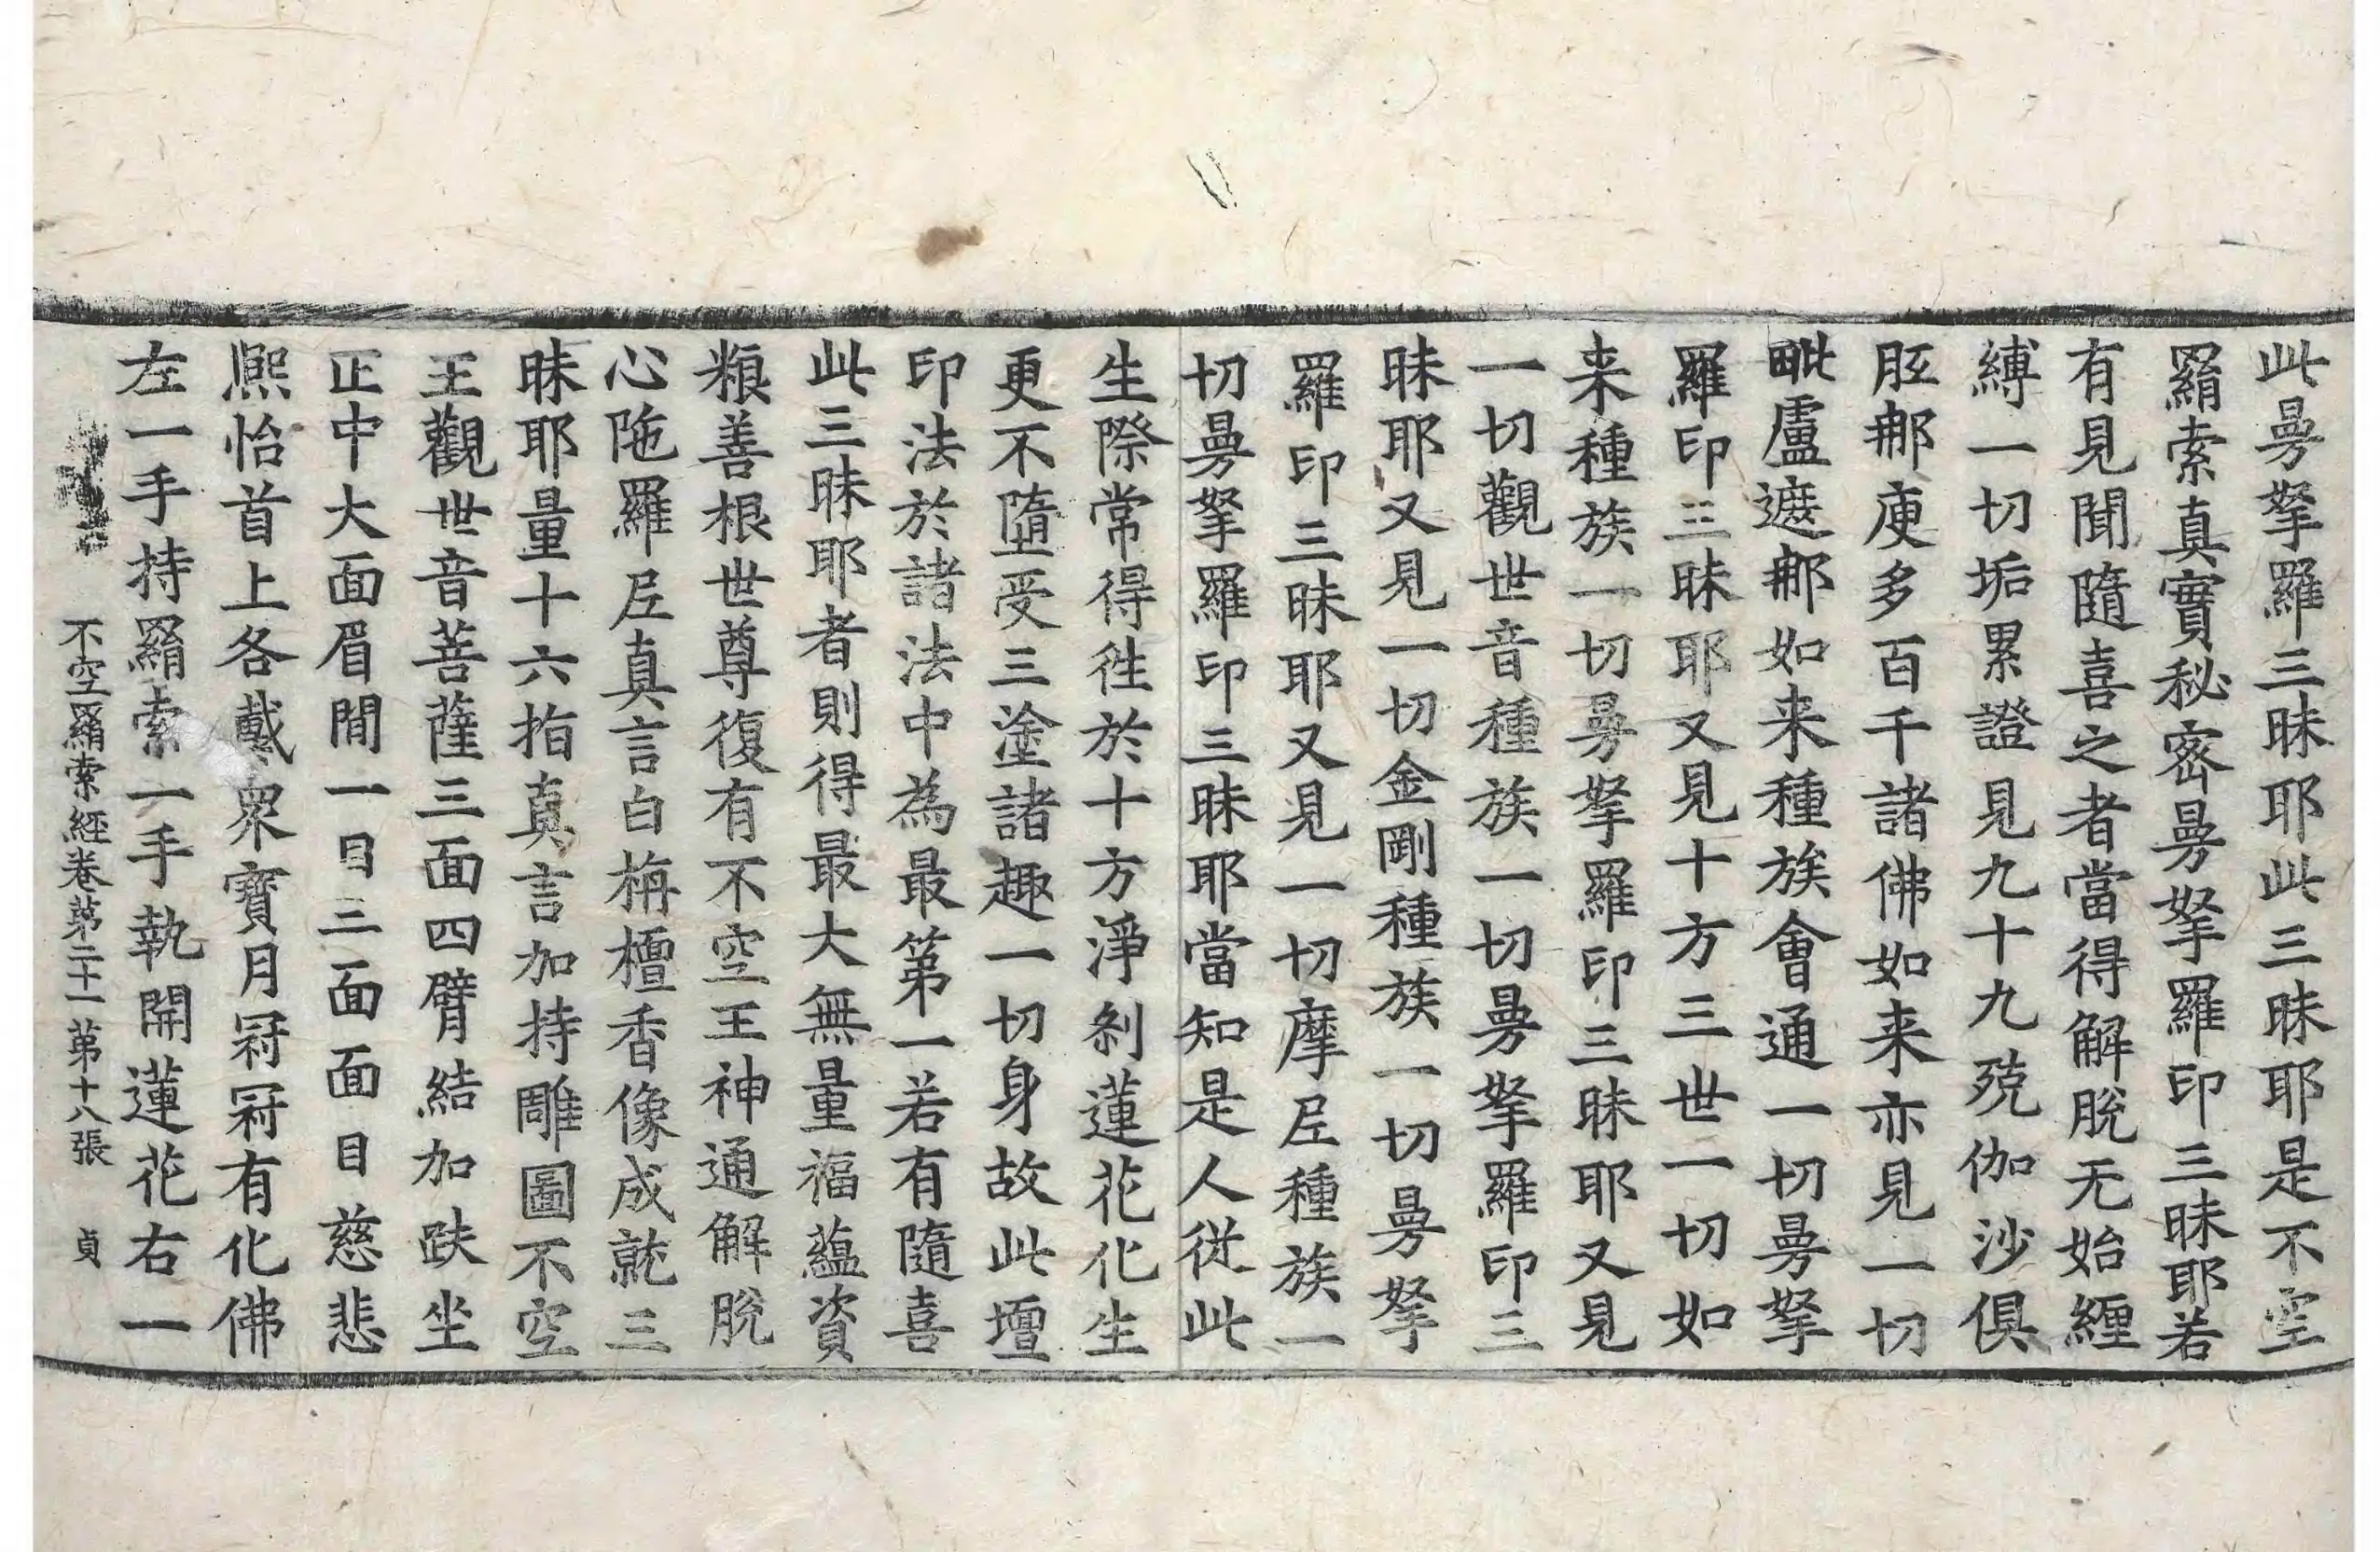 此曼拏羅三昧耶此三昧耶是不空
羂索真實秘密曼拏羅印三昧耶若
有見聞隨喜之者當得解脫无始纏
縛一切垢累證見九十九殑伽沙俱
胝那庾多百千諸佛如来亦見一切
毗盧遮那如来種族會通一切曼拏
羅印三昧耶又見十方三世一切如
来種族一切曼拏羅印三昧耶又見
一切觀世音種族一切曼拏羅印三
昧耶又見一切金剛種族一切曼拏
羅印三昧耶又見一切摩尼種族一
切曼拏羅印三昧耶當知是人從此
生際常得往於十方淨剎蓮花化生
更不墮受三塗諸趣一切身故此壇
印法於諸法中為最第一若有隨喜
此三昧耶者則得最大無量福蘊資
粮善根世尊復有不空王神通解脫
心陁羅尼真言白栴檀香像成就三
昧耶量十六指真言加持雕圖不空
王觀世音菩薩三面四臂結加趺坐
正中大面眉間一目三面面目慈悲
熈怡首上各戴衆寶月冠冠有化佛
左一手持羂索一手執開蓮花右一
不空羂索經卷第二十一 第十八張 貞